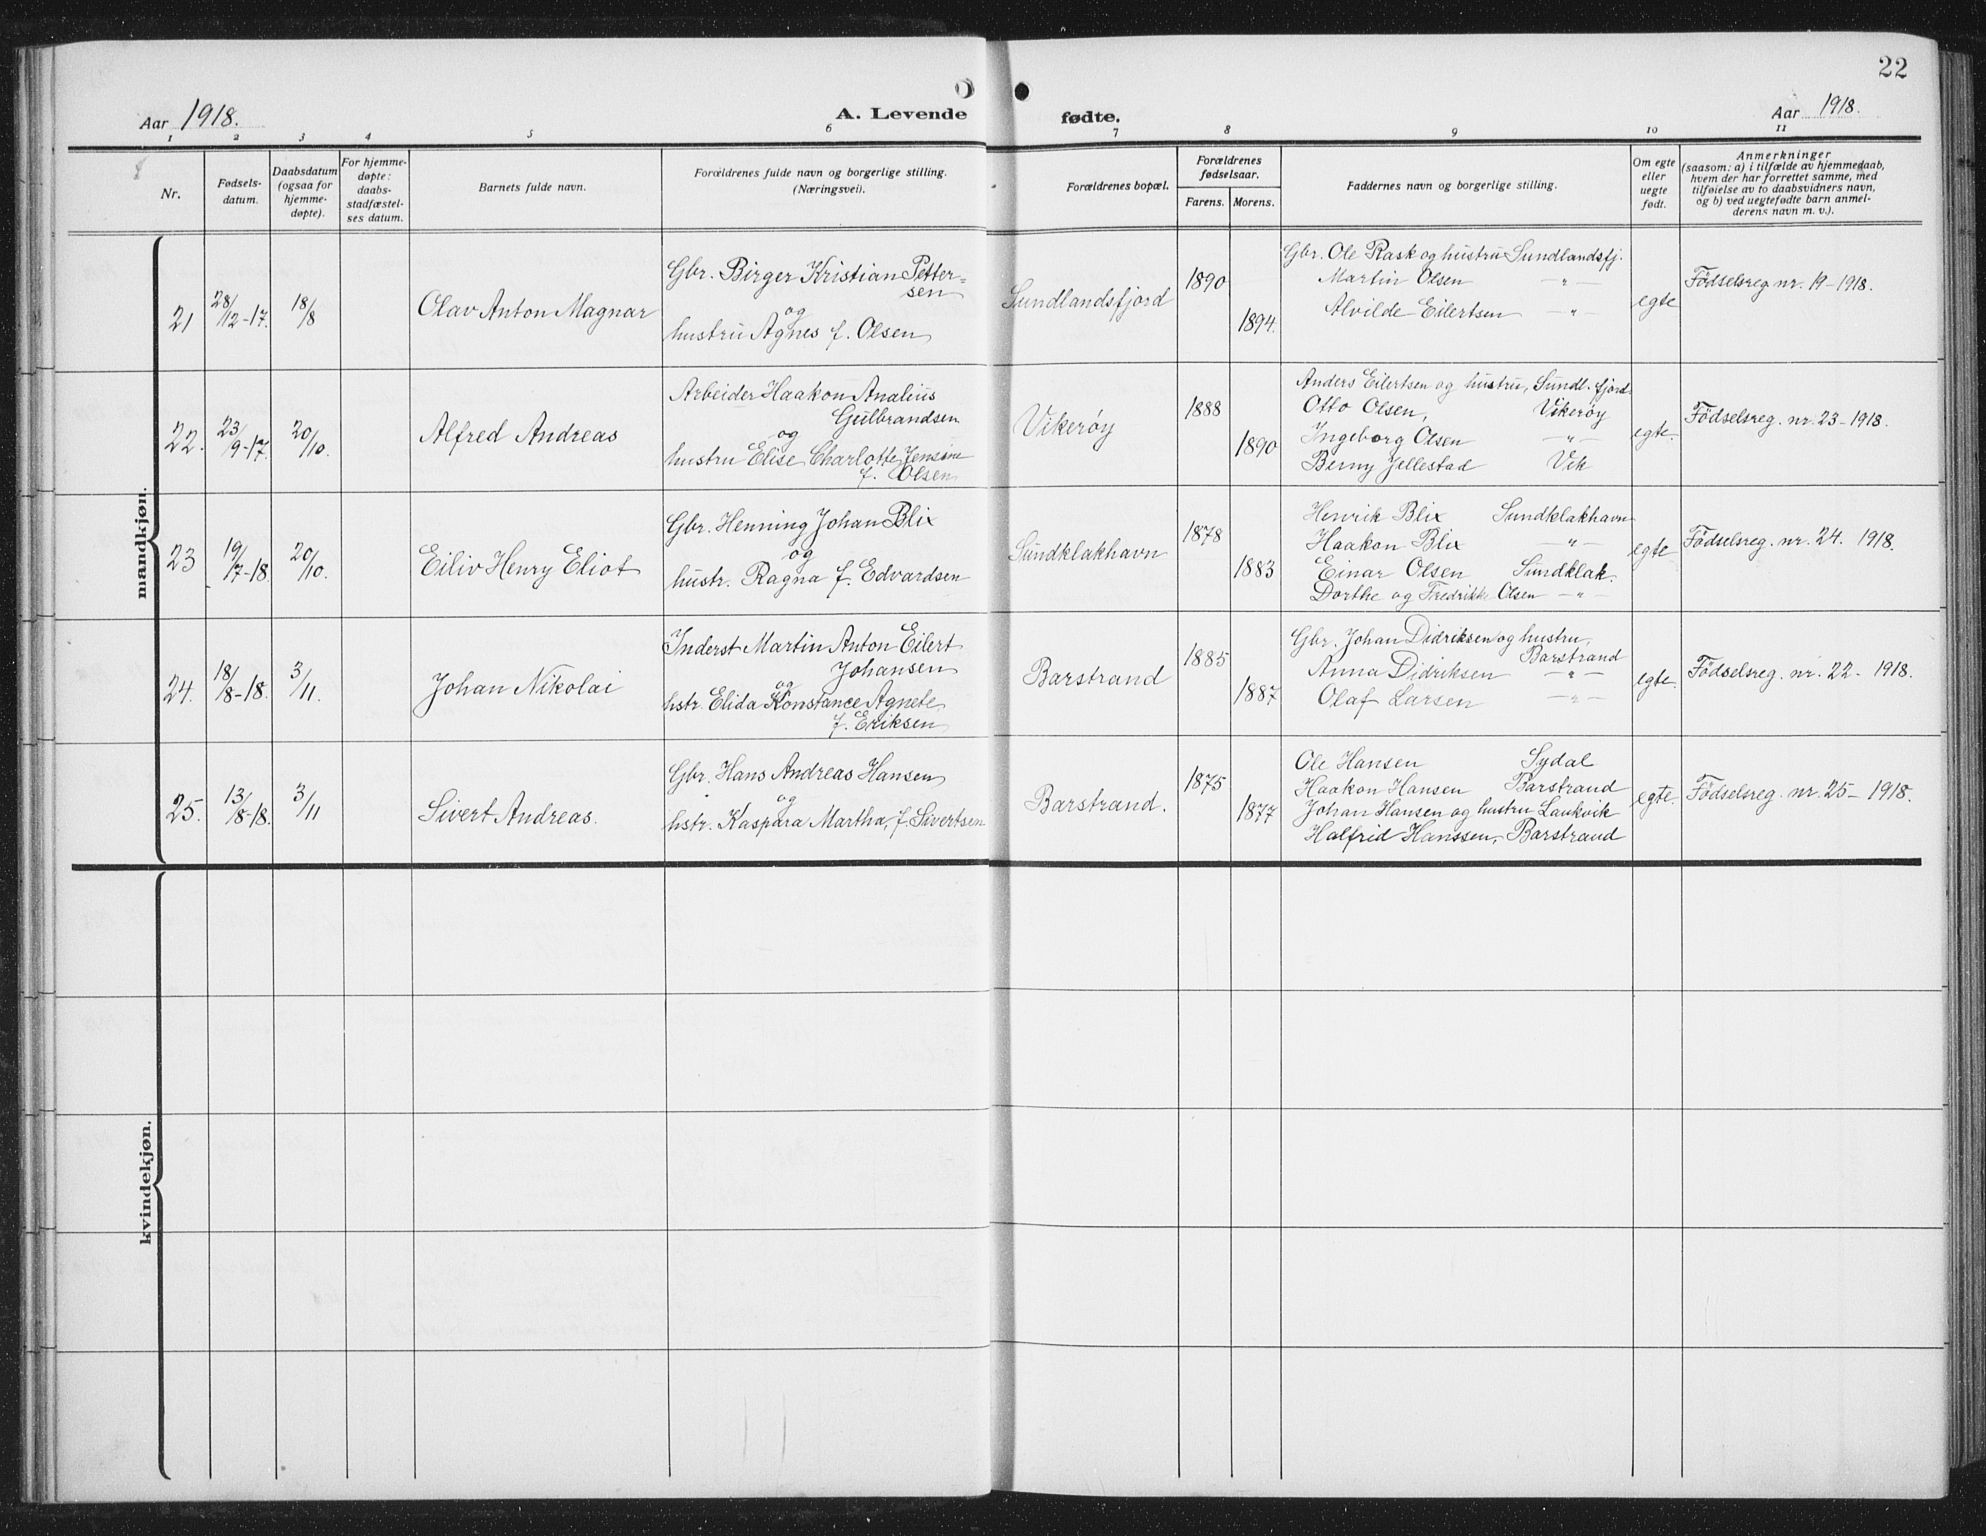 22
Aar 1918.
A. Levende
fødte.
Aar 1918.
1 2 3 4 5 6 7 8 9 10 11
Nr.
Fødsels-
datum.
Daabsdatum
(ogsaa for
hjemme-
døpte).
For hjemme-
døpte:
daabs-
stadfæstel-
ses datum.
Barnets fulde navn.
Forældrenes fulde navn og borgerlige stilling.
(Næringsvei).
Forældrenes bopæl.
Forældrenes
fødselsaar.
Farens. Morens.
Faddernes navn og borgerlige stilling.
Om egte
eller
uegte
født.
Anmerkninger
(saasom: a) i tilfælde av hjemmedaab,
hvem der har forrettet samme, med
tilføielse av to daabsvidners navn,
og b) ved uegtefødte barn anmel-
derens navn m. v.).
mandkjøn.
21
28/12-17.
18/8
Olav Anton Magnar
Gbr. Birger Kristian Petter-
sen
og
hustru Agnes f. Olsen
Sundlandsfjord
1890
1894.
Gbr. Ole Rask og hustru Sundlandsfj.
Martin Olsen — " —
Alvilde Eilertsen — " —
egte
Fødselsreg nr. 19-1918.
22.
23/9-17.
20/10.
Alfred Andreas
Arbeider Haakon Analius
Gulbrandsen
og
hustru Elise Charlotte Jensine
f. Olsen
Vikerøy
1888
1890
Anders Eilertsen og hustru, Sundl. fjord
Otto Olsen, Vikerøy
Ingeborg Olsen — " —
Berny Jellestad Vik
egte.
Fødselsreg. nr. 23-1918.
23
19/7-18.
20/10.
Eiliv Henry Eliot
Gbr. Henning Johan Blix
og
hustr. Ragna f. Edvardsen
Sundklakhavn
1878
1883
Henrik Blix Sundklakhavn
Haakon Blix — " —
Einar Olsen Sundklak.
Dorthe og Fredrikke Olsen — " —
egte
Fødselsreg. nr. 24. 1918.
24.
18/8-18.
3/11.
Johan Nikolai
Inderst Martin Anton Eilert
Johansen
og
hstr. Elida Konstance Agnete
f. Eriksen
Barstrand
1885
1887
Gbr. Johan Didriksen og hustru,
Barstrand
Anna Didriksen — " —
Olaf Larsen "
egte.
Fødselsreg. nr. 22-1918.
25.
13/8-18.
3/11
Sivert Andreas.
Gbr. Hans Andreas Hansen
og
hstr. Kaspara Martha, f. Sivertsen
Barstrand.
1875
1877
Ole Hansen Sydal
Haakon Hansen Barstrand
Johan Hansen og hustru Laukvik
Halfrid Hanssen, Barstrand
egte.
Fødselsreg. nr. 25-1918.
kvindekjøn.